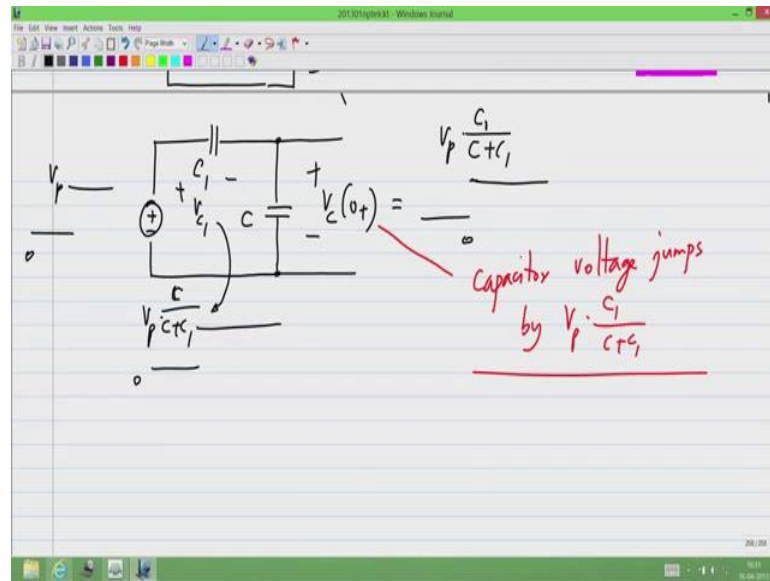 201301nptelckt - Windows Journal
File Edit View Insert Actions Tools Help
Page Width
B I
V_p
0
C_1
+ V_{c_1} -
+
-
C
+
V_c(0+) =
-
V_p · C_1/(C+C_1)
0
V_p · C/(C+C_1)
0
capacitor voltage jumps
by V_p · C_1/(C+C_1)